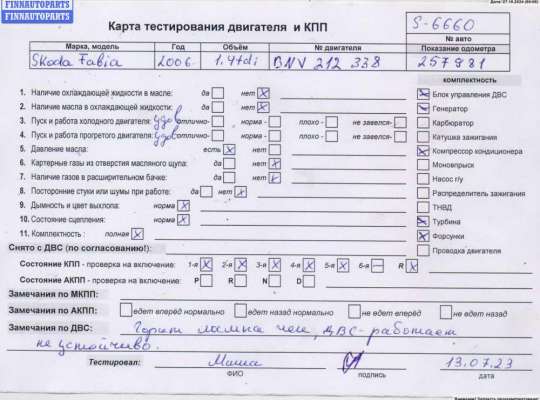 FINNAUTOPARTS
Дата: 07.10.2024
Карта тестирования двигателя и КПП
S-6660
№ авто
Марка, модель Год Объём № двигателя Показание одометра
Skoda Fabia 2006 1.4tdi BNV 212 338 257981
комплектность
1. Наличие охлаждающей жидкости в масле: да нет X Блок управления ДВС
2. Наличие масла в охлаждающей жидкости: да нет X Генератор
3. Пуск и работа холодного двигателя: удов отлично- норма - плохо - не завелся- Карбюратор
4. Пуск и работа прогретого двигателя: удов отлично- норма - плохо - не завелся- Катушка зажигания
5. Давление масла: есть X нет Компрессор кондиционера
6. Картерные газы из отверстия масляного щупа: да нет X Моновпрыск
7. Наличие газов в расширительном бачке: да нет X Насос г/у
8. Посторонние стуки или шумы при работе: да нет X Распределитель зажигания
9. Дымность и цвет выхлопа: норма X ТНВД
10. Состояние сцепления: норма X Турбина
11. Комплектность : полная X Форсунки
Снято с ДВС (по согласованию!): Проводка двигателя
Состояние КПП - проверка на включение: 1-я X 2-я X 3-я X 4-я X 5-я X 6-я — R X
Состояние АКПП - проверка на включение: P R N D
Замечания по МКПП:
Замечания по АКПП: едет вперёд нормально едет назад нормально не едет вперёд не едет назад
Замечания по ДВС: Горит лампа чек, ДВС - работает
не устойчиво.
Тестировал: Миша 13.07.23
ФИО подпись дата